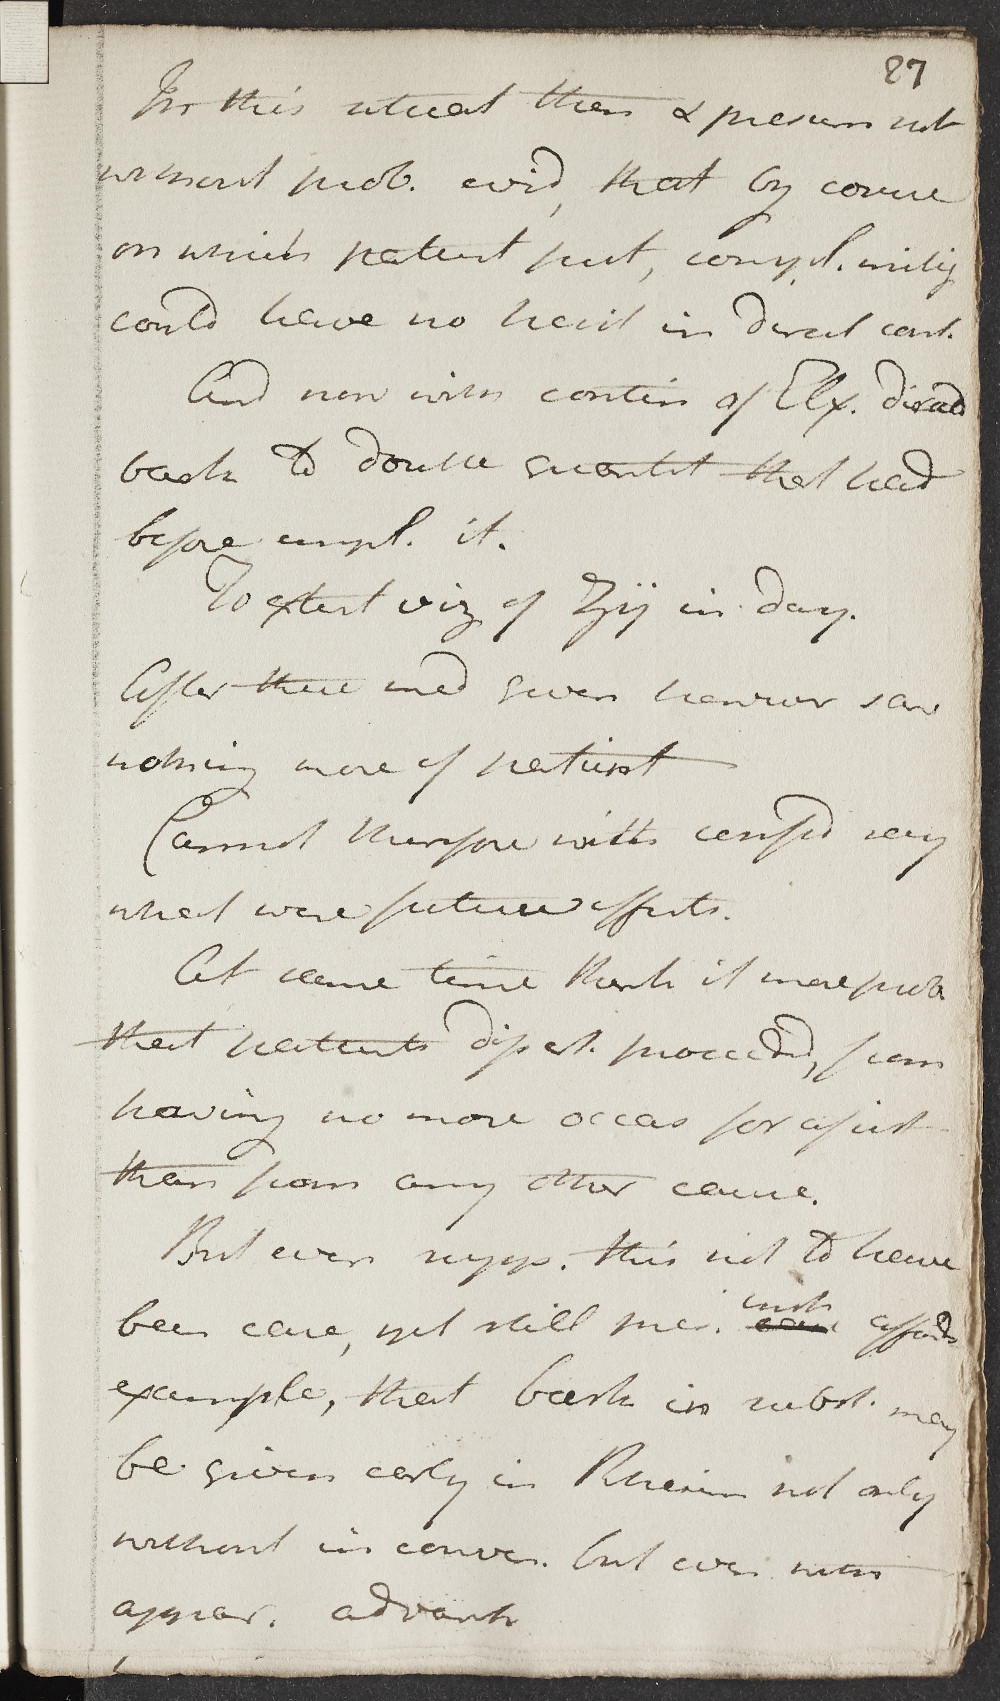 87
In this situat then & presum not
without prob. evid, that by course
on which patient put, compl. mitig
could have no hand in direct cont.
And now with contin of Elx. direct
bark to double quantit that had
before empl. it.
To extent viz of ʒij in day.
After these med given however saw
nothing more of patient
Cannot therefore with confid say
what were future effects.
At same time think it more prob
that patients dis est. proceeded, from
having no more occas for assist
than from any other cause.
But even supp. this not to have
been case, yet still pres. inst affords
example, that bark in subst. may
be given early in Rheum not only
without in conven. but even with
appear. advant